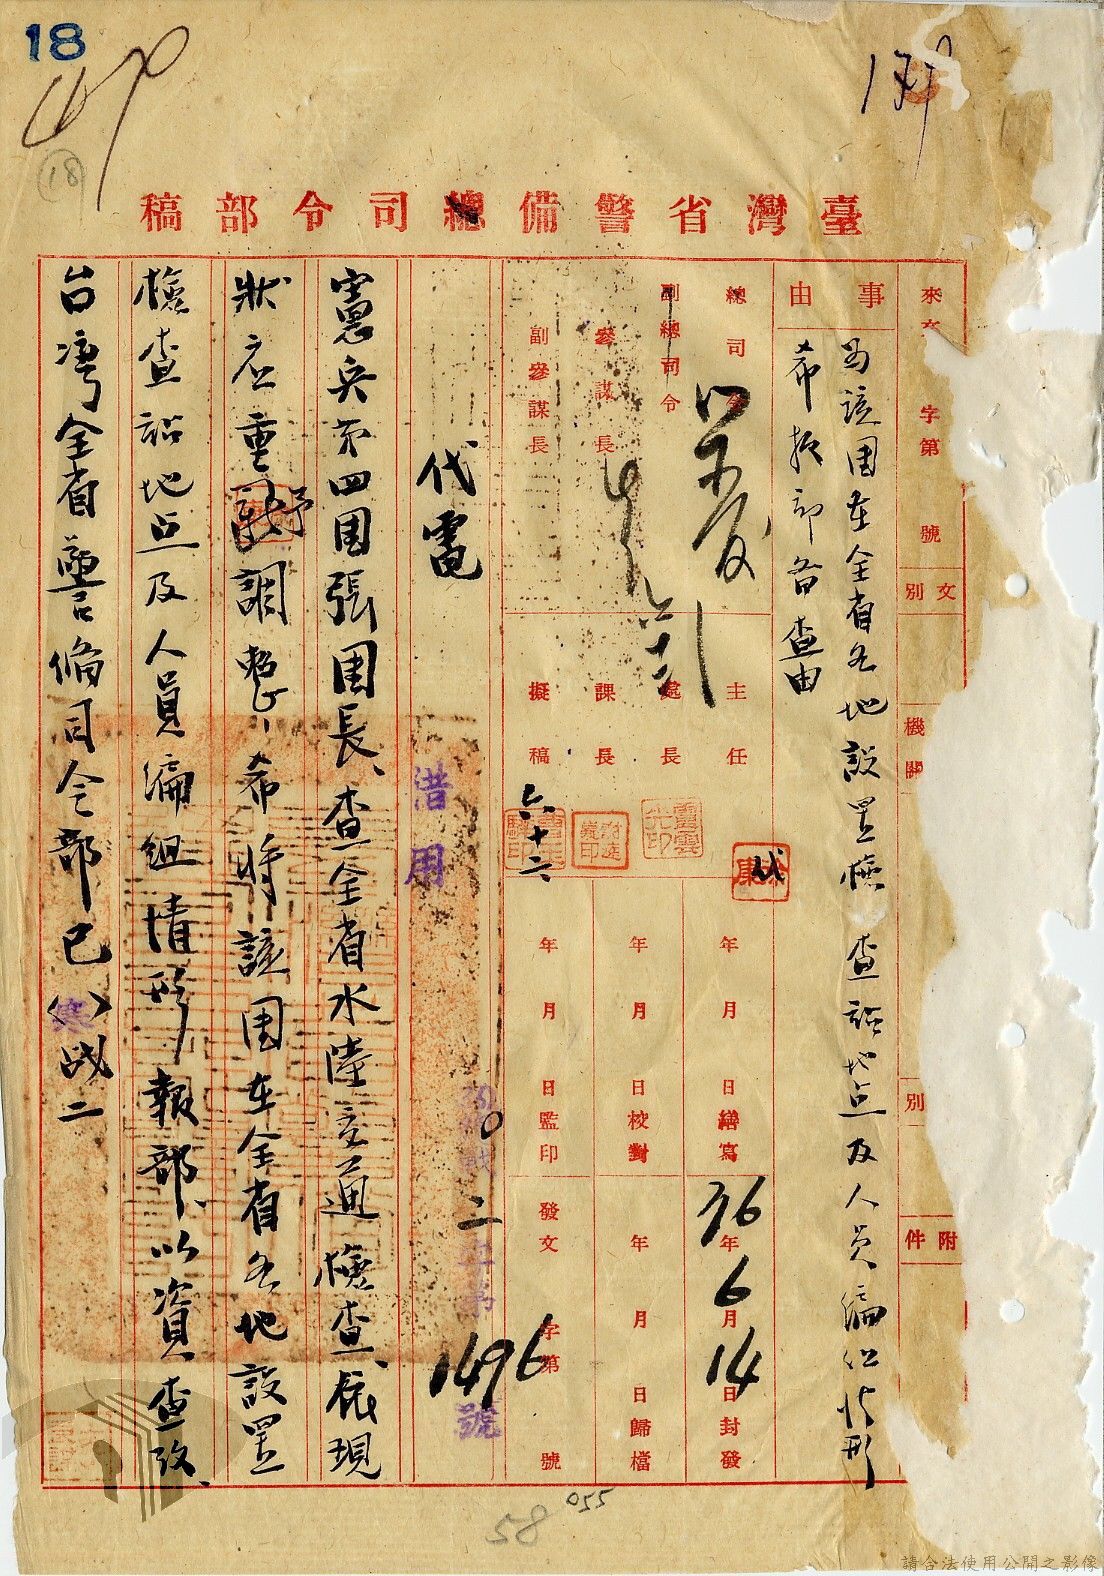 18
18
臺灣省警備總司令部稿
來文 字第 號
文別
機關
別
附件
事由
為該團在全省各地設置檢查站地点及人員編組情形
希報部备查由
總司令
副總司令
參謀長
副參謀長
主任
處長
課長
擬稿
六十三
六十三
代
年 月 日繕寫
年 月 日校對
年 月 日監印
36年6月14日封發
年 月 日歸檔
發文 字第 號
借用
二 字第 1496 號
代電
憲兵第四團張團長、查全省水陸交通檢查、依現
狀应重予調整、希將該團在全省各地設置
檢查站地点及人員編組情形報部、以資查攷、
台灣全省警備司令部巳(寒)战二
055
58
請合法使用公開之影像